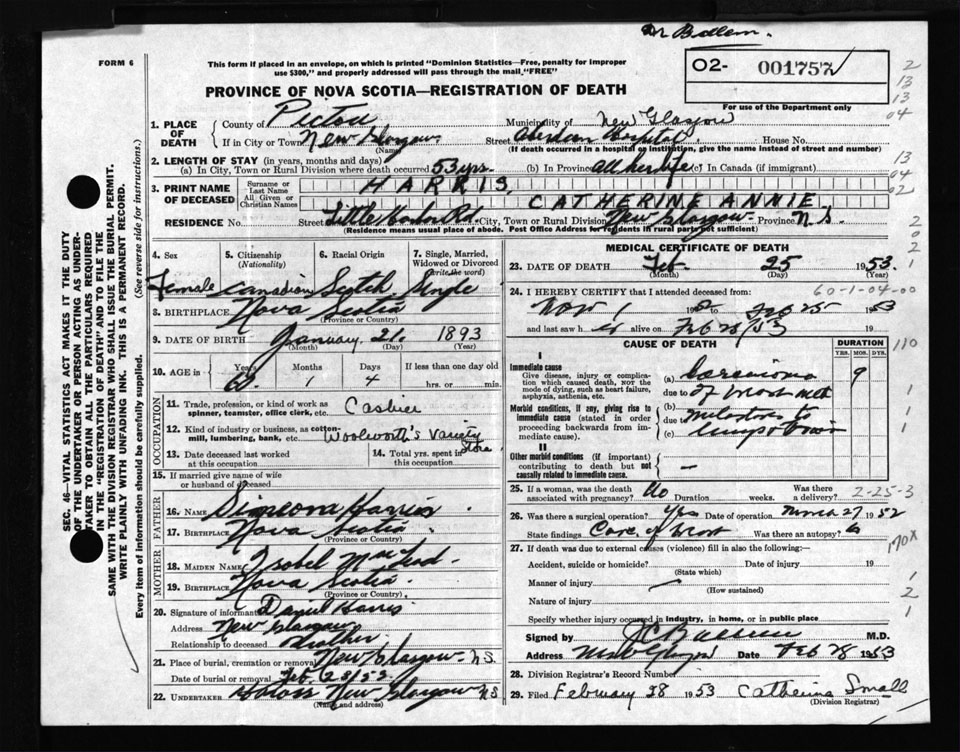 Dr Ballem.
FORM 6
This form if placed in an envelope, on which is printed "Dominion Statistics—Free, penalty for improper
use $300," and properly addressed will pass through the mail "FREE"
O2- 001757
For use of the Department only
PROVINCE OF NOVA SCOTIA—REGISTRATION OF DEATH
1. PLACE OF DEATH
County of Pictou Municipality of New Glasgow
If in City or Town New Glasgow (Name) Street Aberdeen Hospital House No.
(If death occurred in a hospital or institution, give the name instead of street and number)
2. LENGTH OF STAY (in years, months and days)
(a) In City, Town or Rural Division where death occurred 53 yrs. (b) In Province all her life (c) In Canada (if immigrant)
3. PRINT NAME OF DECEASED
Surname or Last Name HARRIS,
All Given or Christian Names CATHERINE ANNIE
RESIDENCE No. Street Little Harbor Rd. City, Town or Rural Division New Glasgow Province N.S.
(Residence means usual place of abode. Post Office Address for residents in rural parts not sufficient)
4. Sex Female
5. Citizenship (Nationality) Canadian
6. Racial Origin Scotch
7. Single, Married, Widowed or Divorced (write the word) Single
8. BIRTHPLACE Nova Scotia
(Province or Country)
9. DATE OF BIRTH January 21, 1893
(Month) (Day) (Year)
10. AGE in Years Months 1 Days 4 If less than one day old hrs. or min.
OCCUPATION
11. Trade, profession, or kind of work as
spinner, teamster, office clerk, etc. Cashier
12. Kind of industry or business, as cotton-
mill, lumbering, bank, etc. Woolworth's Variety Store
13. Date deceased last worked at this occupation
14. Total yrs. spent in this occupation
15. If married give name of wife
or husband of deceased
FATHER
16. NAME Simeon Harris
17. BIRTHPLACE Nova Scotia
(Province or Country)
MOTHER
18. MAIDEN NAME Isobel MacLeod
19. BIRTHPLACE Nova Scotia
(Province or Country)
20. Signature of informant Daniel Harris
Address New Glasgow
Relationship to deceased brother
21. Place of burial, cremation or removal New Glasgow N.S.
Date of burial Feb. 28/53
22. UNDERTAKER New Glasgow NS
(Name and address)
MEDICAL CERTIFICATE OF DEATH
23. DATE OF DEATH Feb. 25 1953
(Month) (Day) (Year)
60-1-04-00
24. I HEREBY CERTIFY that I attended deceased from:
Nov 1 19 to Feb 25 1953
and last saw her alive on Feb 19
CAUSE OF DEATH
DURATION
YRS. MOS. DYS.
I
Immediate cause
Give disease, injury or complication which caused death, NOT the mode of dying, such as heart failure, asphyxia, asthenia, etc.
(a) Carcinoma 9
due to of breast with
Morbid conditions, if any, giving rise to immediate cause (stated in order proceeding backwards from immediate cause).
(b)
due to
(c)
II
Other morbid conditions (if important) contributing to death but not causally related to immediate cause. —
25. If a woman, was the death associated with pregnancy? No Duration weeks. Was there a delivery?
2-25-3
26. Was there a surgical operation? Yes Date of operation March 27 1952
State findings Carc. of breast Was there an autopsy?
170X
27. If death was due to external causes (violence) fill in also the following:—
Accident, suicide or homicide? (State which) Date of injury 19
Manner of injury (How sustained)
Nature of injury
Specify whether injury occurred in industry, in home, or in public place
Signed by M.D.
Address New Glasgow Date Feb 28 1953
28. Division Registrar's Record Number
29. Filed February 28 1953 Catherine Small
(Division Registrar)
SEC. 46—VITAL STATISTICS ACT MAKES IT THE DUTY
OF THE UNDERTAKER OR PERSON ACTING AS UNDER-
TAKER TO OBTAIN ALL THE PARTICULARS REQUIRED
IN THE "REGISTRATION OF DEATH" AND TO FILE THE
SAME WITH THE DIVISION REGISTRAR WHO SHALL ISSUE THE BURIAL PERMIT.
WRITE PLAINLY WITH UNFADING INK. THIS IS A PERMANENT RECORD.
Every item of information should be carefully supplied. (See reverse side for instructions.)
2
13
13
04
13
04
02
2
0
2
1
110
1
1
1
1
2
1